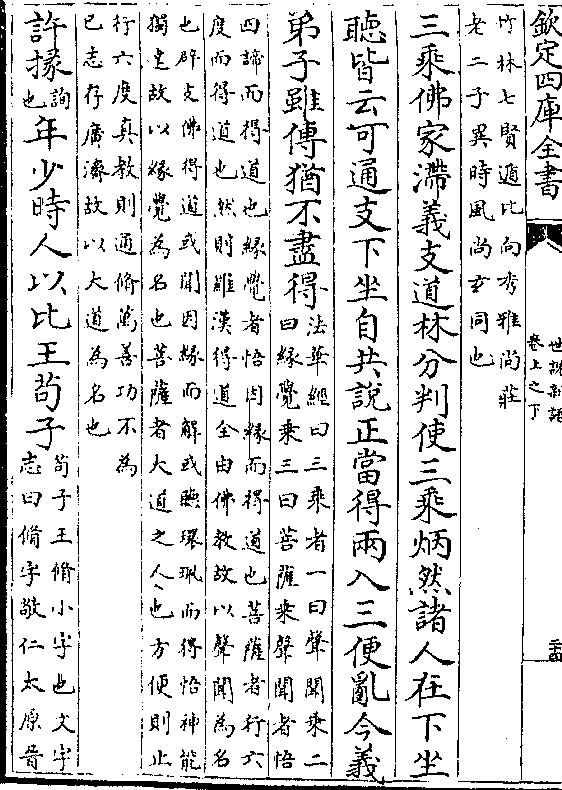 欽定四庫全書
世說新語
卷上之下
二十四
竹林七賢遁比向秀雅尚莊
老二子異時風尚玄同也
三乘佛家滯義支道林分判使三乘炳然諸人在下坐
聽皆云可通支下坐自共說正當得兩入三便亂今義
弟子雖傳猶不盡得
法華經曰三乘者一曰聲聞乘二
曰緣覺乘三曰菩薩乘聲聞者悟
四諦而得道也緣覺者悟因緣而得道也菩薩者行六
度而得道也然則羅漢得道全由佛教故以聲聞為名
也辟支佛得道或聞因緣而解或聽環珮而得悟神能
獨達故以緣覺為名也菩薩者大道之人也方便則止
行六度真教則通脩萬善功不為
已志存廣濟故以大道為名也
許掾詢也年少時人以比王苟子
苟子王脩小字也文字
志曰脩字敬仁太原晉